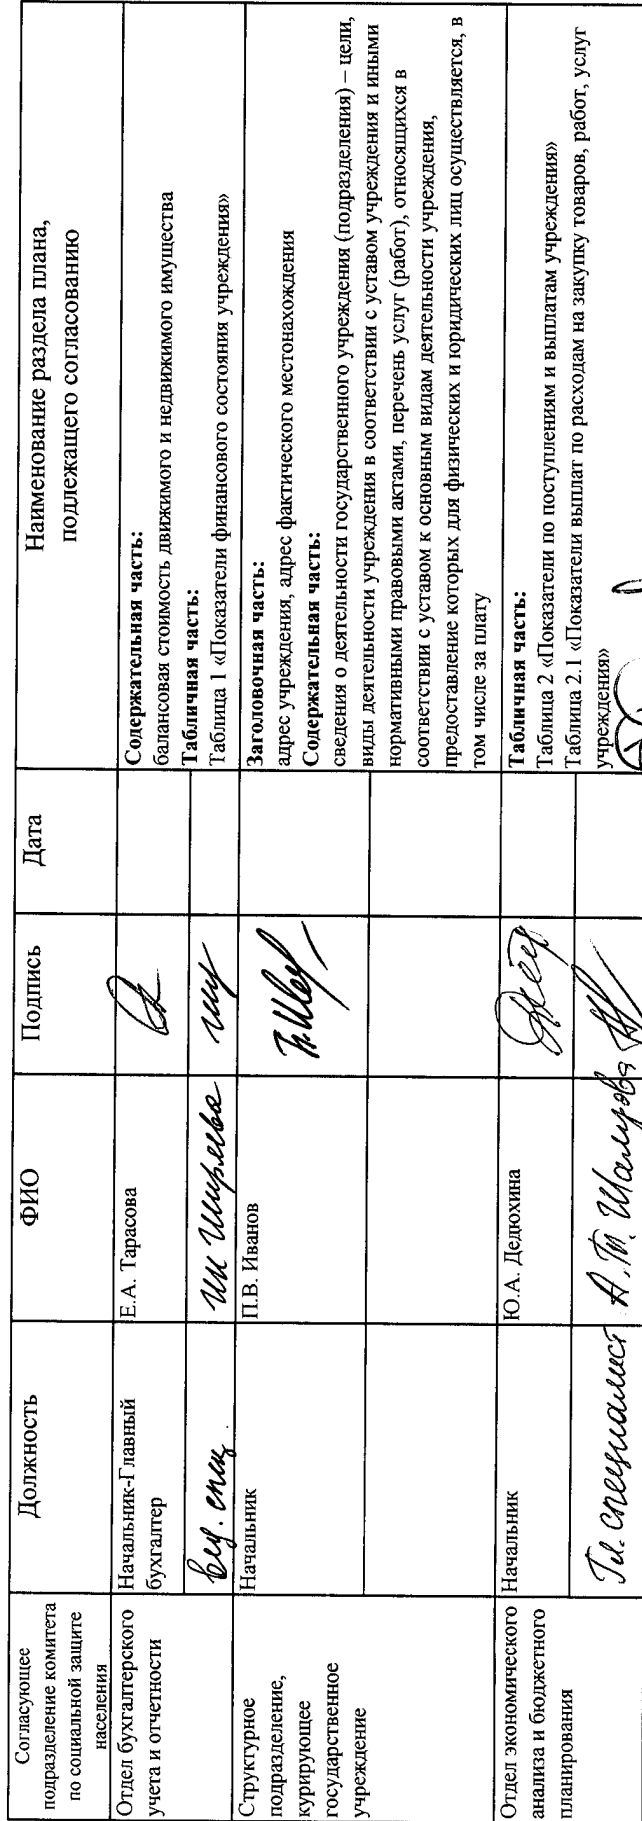 Согласующее
подразделение комитета
по социальной защите
населения
Должность
ФИО
Подпись
Дата
Наименование раздела плана,
подлежащего согласованию
Отдел бухгалтерского
учета и отчетности
Начальник-Главный
бухгалтер
Е.А. Тарасова
вед. спец.
Содержательная часть:
балансовая стоимость движимого и недвижимого имущества
Табличная часть:
Таблица 1 «Показатели финансового состояния учреждения»
Структурное
подразделение,
курирующее
государственное
учреждение
Начальник
П.В. Иванов
Заголовочная часть:
адрес учреждения, адрес фактического местонахождения
Содержательная часть:
сведения о деятельности государственного учреждения (подразделения) – цели,
виды деятельности учреждения в соответствии с уставом учреждения и иными
нормативными правовыми актами, перечень услуг (работ), относящихся в
соответствии с уставом к основным видам деятельности учреждения,
предоставление которых для физических и юридических лиц осуществляется, в
том числе за плату
Отдел экономического
анализа и бюджетного
планирования
Начальник
Ю.А. Дедюхина
Гл. специалист
Табличная часть:
Таблица 2 «Показатели по поступлениям и выплатам учреждения»
Таблица 2.1 «Показатели выплат по расходам на закупку товаров, работ, услуг
учреждения»